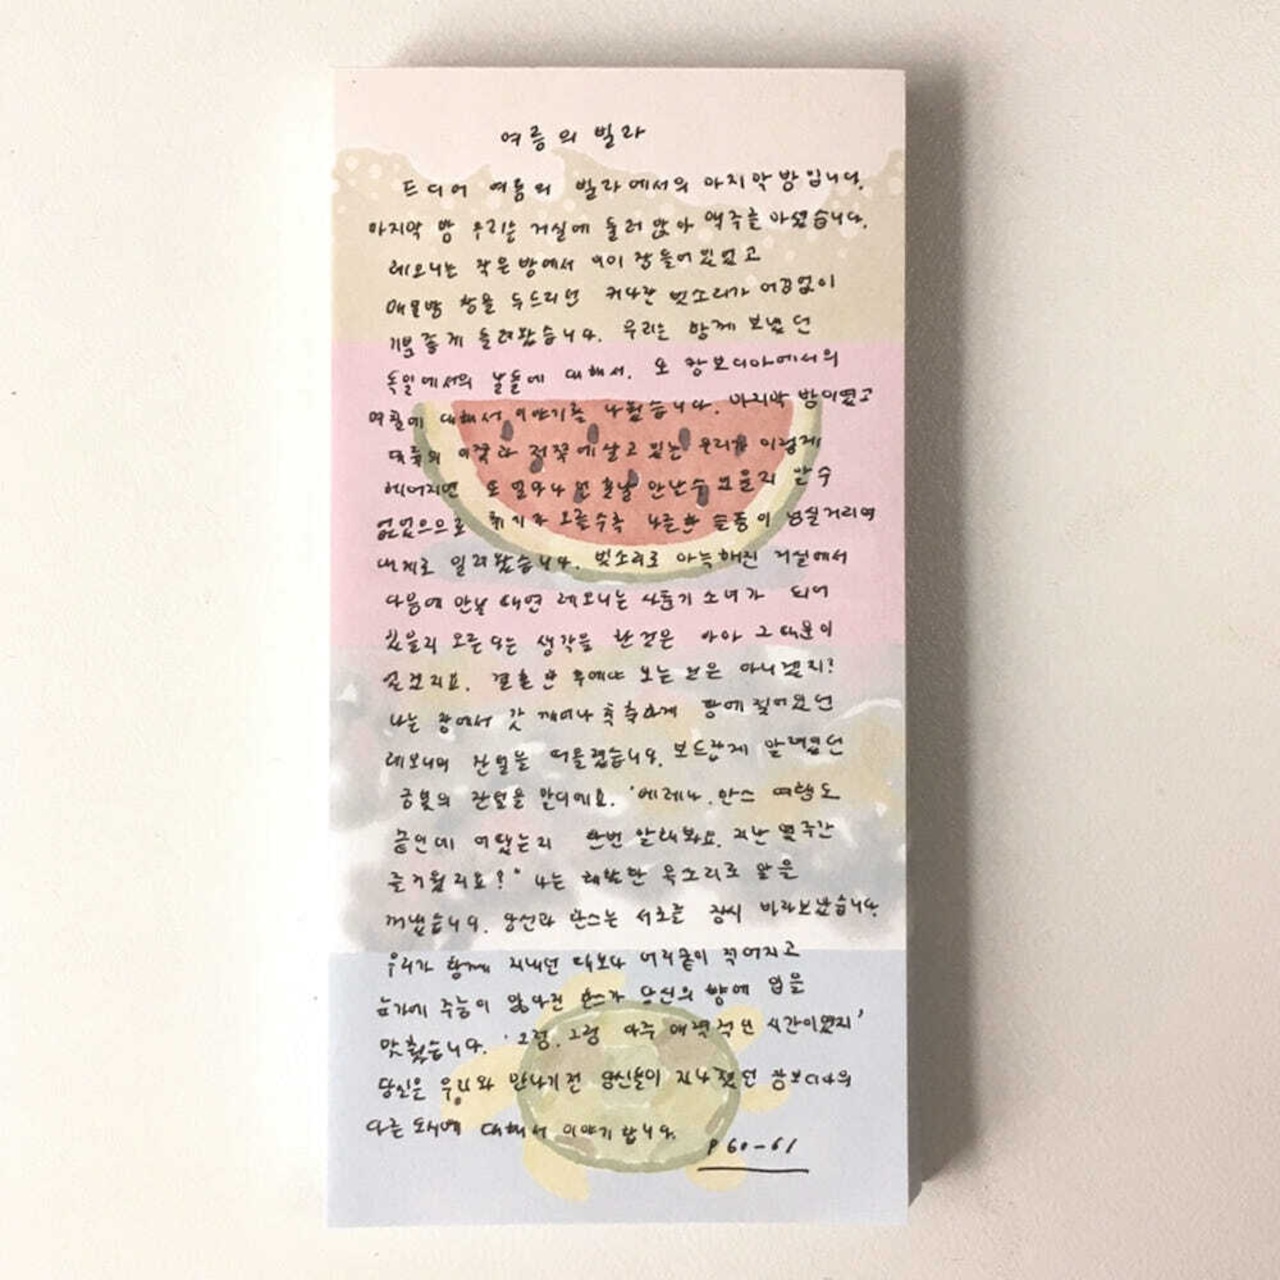 여름의 빌라
드디어 여름의 빌라에서의 마지막 밤입니다.
마지막 밤 우리는 거실에 둘러 앉아 맥주를 마셨습니다.
레오니는 작은 방에서 이미 잠들어 있었고
매일밤 창을 두드리던 커다란 빗소리가 어김없이
기분 좋게 들려왔습니다. 우리는 함께 보냈던
독일에서의 날들에 대해서, 또 캄보디아에서의
여행에 대해서 이야기를 나눴습니다. 마지막 밤이었고
대륙의 이쪽과 저쪽에 살고 있는 우리가 이렇게
헤어지면 또 얼마나 먼 훗날 만난수 있을지 알 수
없었으므로 취기가 오를수록 나른한 슬픔이 넘실거리며
내게로 밀려왔습니다. 빗소리로 아늑해진 거실에서
다음에 만날 때면 레오니는 사춘기 소녀가 되어
있을지 모른다는 생각을 한 것은 아마 그 때문이
었겠지요. 결혼한 후에나 보는 것은 아니겠지?
나는 품에서 갓 깨어나 축축하게 땀에 젖어있던
레오니의 잔털을 떠올렸습니다. 보드랍게 말려있던
금빛의 잔털을 말이에요. '베레나, 한스 여행도
끝인데 어땠는지 한번 말해봐요. 지난 몇주간
즐거웠지요?" 나는 쾌활한 목소리로 말을
꺼냈습니다. 당신과 한스는 서로를 잠시 바라보았습니다.
우리가 함께 지내던 때보다 머리숱이 적어지고
눈가에 주름이 많아진 한스가 당신의 뺨에 입을
맞췄습니다. '그럼, 그럼 아주 매력적인 시간이었지'
당신은 우리와 만나기 전 당신들이 지나쳤던 캄보디아의
다른 도시에 대해서 이야기합니다.
p 60-61